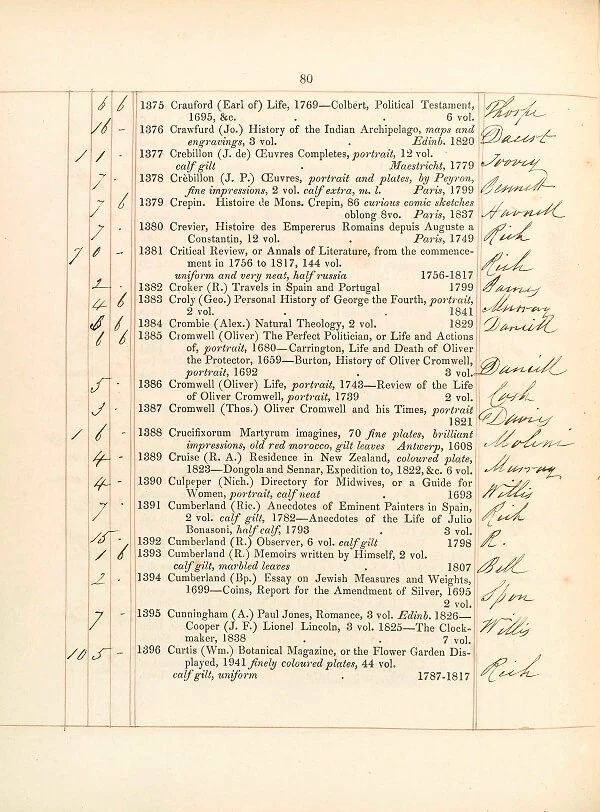 80
6 6 1375 Crauford (Earl of) Life, 1769—Colbert, Political Testament,
1695, &c. . . 6 vol. Thorpe
16 - 1376 Crawfurd (Jo.) History of the Indian Archipelago, maps and
engravings, 3 vol. . Edinb. 1820
1 1 - 1377 Crebillon (J. de) Œuvres Completes, portrait, 12 vol. .
calf gilt . Maestricht, 1779
7 · 1378 Crèbillon (J. P.) Œuvres, portrait and plates, by Peyron,
fine impressions, 2 vol. calf extra, m. l. Paris, 1799 Bennett
7 6 1379 Crepin. Histoire de Mons. Crepin, 86 curious comic sketches
oblong 8vo. Paris, 1837
7 · 1380 Crevier, Histoire des Empererus Romains depuis Auguste a
Constantin, 12 vol. . Paris, 1749 Rich
7 0 - 1381 Critical Review, or Annals of Literature, from the commence-
ment in 1756 to 1817, 144 vol.
uniform and very neat, half russia 1756-1817 Rich
2 · 1382 Croker (R.) Travels in Spain and Portugal 1799 Barnes
4 6 1383 Croly (Geo.) Personal History of George the Fourth, portrait,
2 vol. . . 1841 Murray
3 6 1384 Crombie (Alex.) Natural Theology, 2 vol. 1829 Daniell
6 6 1385 Cromwell (Oliver) The Perfect Politician, or Life and Actions
of, portrait, 1680—Carrington, Life and Death of Oliver
the Protector, 1659—Burton, History of Oliver Cromwell,
portrait, 1692 . . 3 vol. Daniell
5 · 1386 Cromwell (Oliver) Life, portrait, 1743—Review of the Life
of Oliver Cromwell, portrait, 1739 2 vol. Cash
3 · 1387 Cromwell (Thos.) Oliver Cromwell and his Times, portrait
1821 Davies
1 6 - 1388 Crucifixorum Martyrum imagines, 70 fine plates, brilliant
impressions, old red morocco, gilt leaves Antwerp, 1608 Molini
4 - 1389 Cruise (R. A.) Residence in New Zealand, coloured plate,
1823—Dongola and Sennar, Expedition to, 1822, &c. 6 vol. Murray
4 - 1390 Culpeper (Nich.) Directory for Midwives, or a Guide for
Women, portrait, calf neat . 1693 Willis
7 · 1391 Cumberland (Ric.) Anecdotes of Eminent Painters in Spain,
2 vol. calf gilt, 1782—Anecdotes of the Life of Julio
Bonasoni, half calf, 1793 . 3 vol. Rich
15 · 1392 Cumberland (R.) Observer, 6 vol. calf gilt 1798 R.
1 6 1393 Cumberland (R.) Memoirs written by Himself, 2 vol.
calf gilt, marbled leaves . 1807 Bell
2 · 1394 Cumberland (Bp.) Essay on Jewish Measures and Weights,
1699—Coins, Report for the Amendment of Silver, 1695
2 vol. Spon
7 - 1395 Cunningham (A.) Paul Jones, Romance, 3 vol. Edinb. 1826—
Cooper (J. F.) Lionel Lincoln, 3 vol. 1825—The Clock-
maker, 1838 . . 7 vol. Willis
10 5 - 1396 Curtis (Wm.) Botanical Magazine, or the Flower Garden Dis-
played, 1941 finely coloured plates, 44 vol.
calf gilt, uniform . 1787-1817 Rich